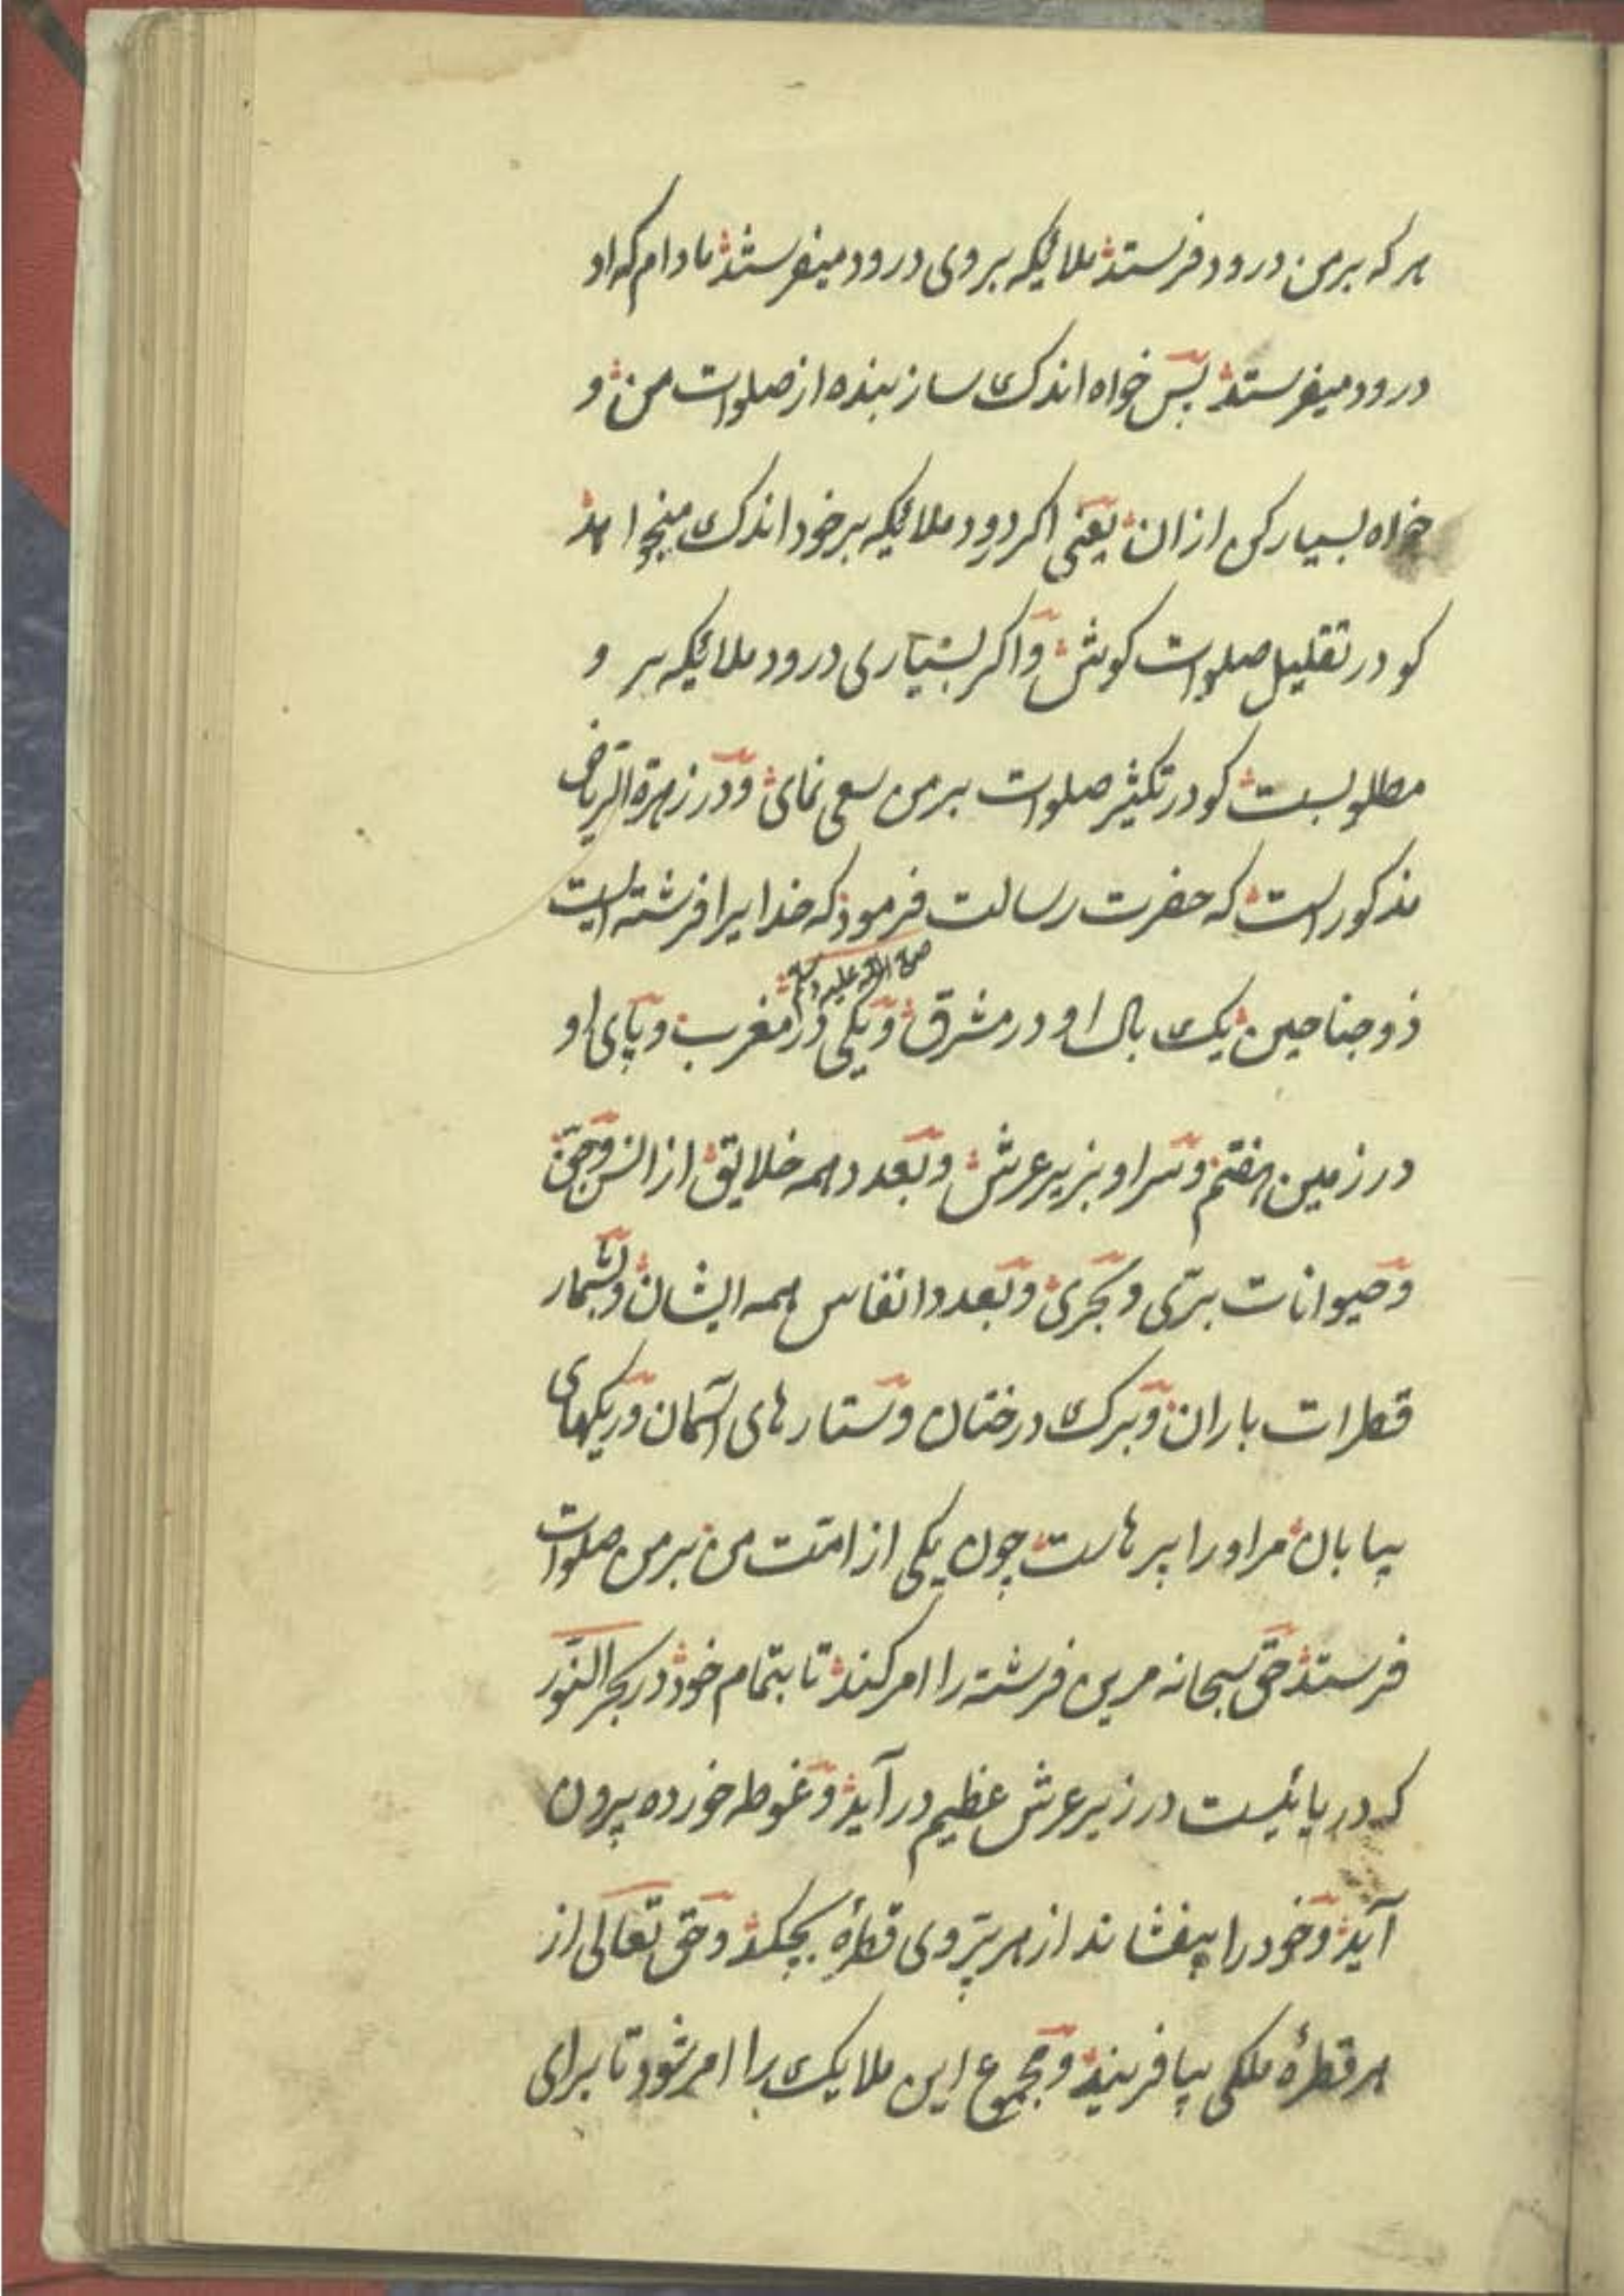 هر که بر من درود فرستد ملائیکه بر وی درود میفرستند مادام که او
درود میفرستد پس خواه اندک ساز بنده از صلوات من و
خواه بسیار کن از ان یعنی اکر درود ملائیکه بر خود اندک میخواهد
کو در تقلیل صلوات کوش و اکر بسیاری درود ملائیکه بر و
مطلوبست کو در تکثیر صلوات بر من سعی نمای و در زهرة الریاض
مذکور است که حضرت رسالت فرمود که خدایرا فرشته ایست
صلی الله علیه وسلم
ذو جناحین یک بال او در مشرق و یکی در مغرب و پای او
در زمین هفتم و سر او بزیر عرش و بعدد همه خلایق از انس و جن
و حیوانات بری و بحری و بعدد انفاس همه ایشان و بشمار
قطرات باران و برک درختان و ستارهای آسمان و ریکهای
بیابان مر اورا پرهاست چون یکی از امت من بر من صلوات
فرستد حق سبحانه مرین فرشته را امر کند تا بتمام خود در بحر النور
که دریائیست در زیر عرش عظیم در آید و غوطه خورده بیرون
آید و خود را بیفشاند از هر پر وی قطرهٔ بچکد و حق تعالی از
هر قطرهٔ ملکی بیافریند و مجموع این ملایک را امر شود تا برای